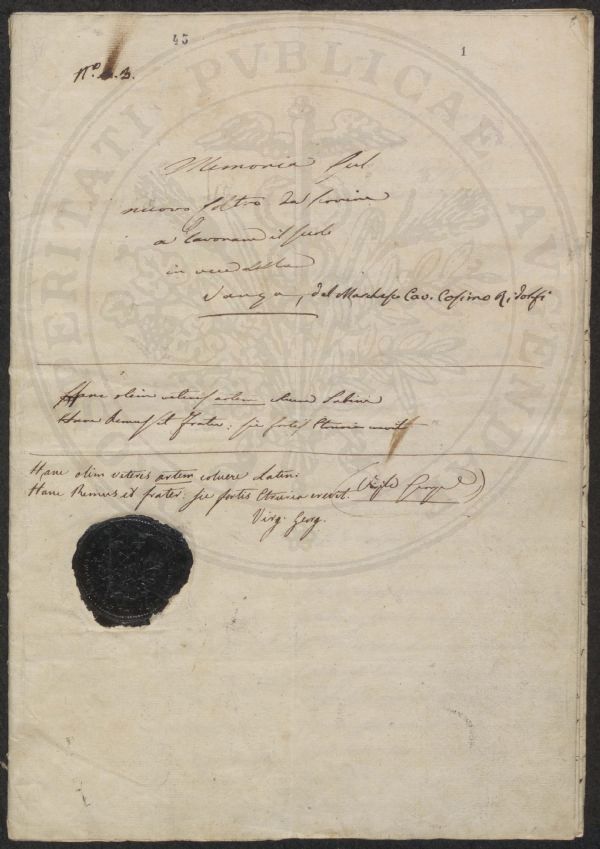 45
1
N.º 3.
PROSPERITATI PVBLICAE AVGENDAE
Memoria sul
nuovo Coltro da servire
a lavorare il suolo
in vece della
Vanga, del Marchese Cav. Cosimo Ridolfi
Hanc olim veteres artem Sabini
Hanc Remus et frater: sic fortis Etruria crevit
Hanc olim veteris artem coluere Latini
Hanc Remus et frater: sic fortis Etruria crevit.
Virg. Georg.